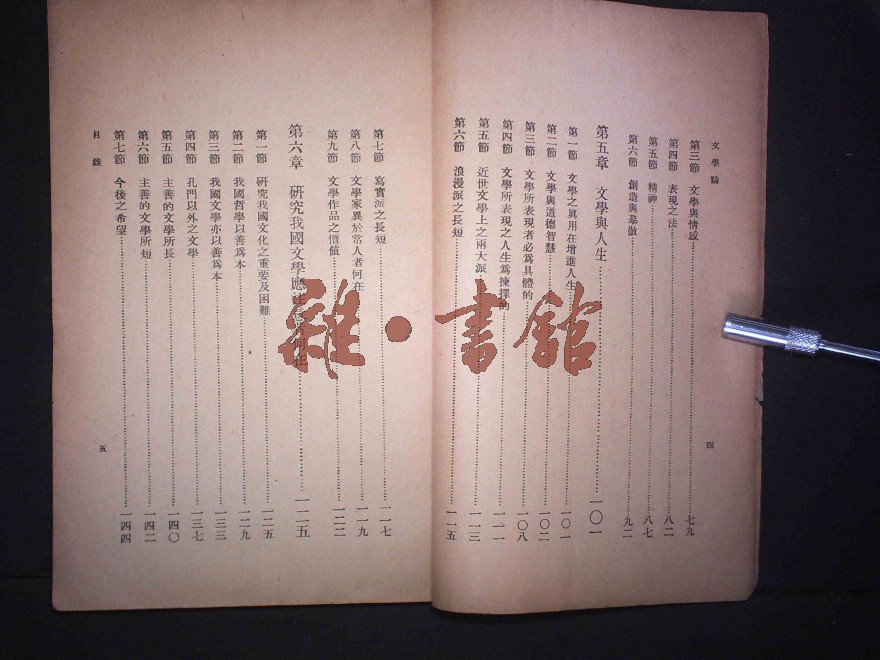 文學論
第三節 文學與情感 七九
第四節 表現之法 八二
第五節 精神 八七
第六節 創造與摹倣 九二
第五章 文學與人生 一〇一
第一節 文學之眞用在增進人生 一〇一
第二節 文學與道德智慧 一〇二
第三節 文學所表現者必爲具體的 一〇八
第四節 文學所表現之人生爲揀擇的 一一一
第五節 近世文學上之兩大派 一一三
第六節 浪漫派之長短 一一五
四
第七節 寫實派之長短 一一七
第八節 文學家異於常人者何在 一一九
第九節 文學作品之價値 一二二
第六章 研究我國文學應注 何在 一二五
第一節 研究我國文化之重要及困難 一二五
第二節 我國哲學以善爲本 一二九
第三節 我國文學亦以善爲本 一三三
第四節 孔門以外之文學 一三七
第五節 主善的文學所長 一四〇
第六節 主善的文學所短 一四二
第七節 今後之希望 一四四
目錄
五
雜·書館